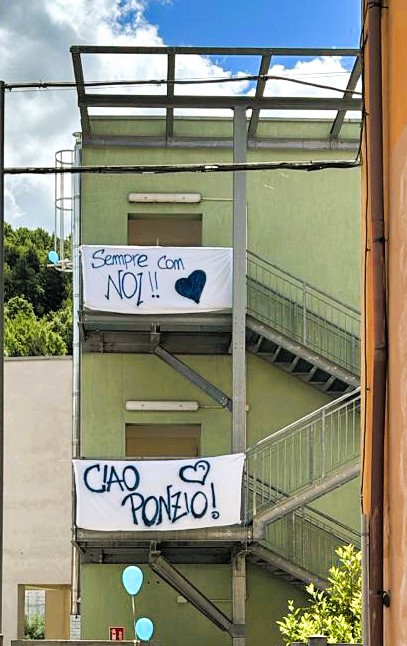 Sempre com
NOI!!
CIAO
PONZIO!